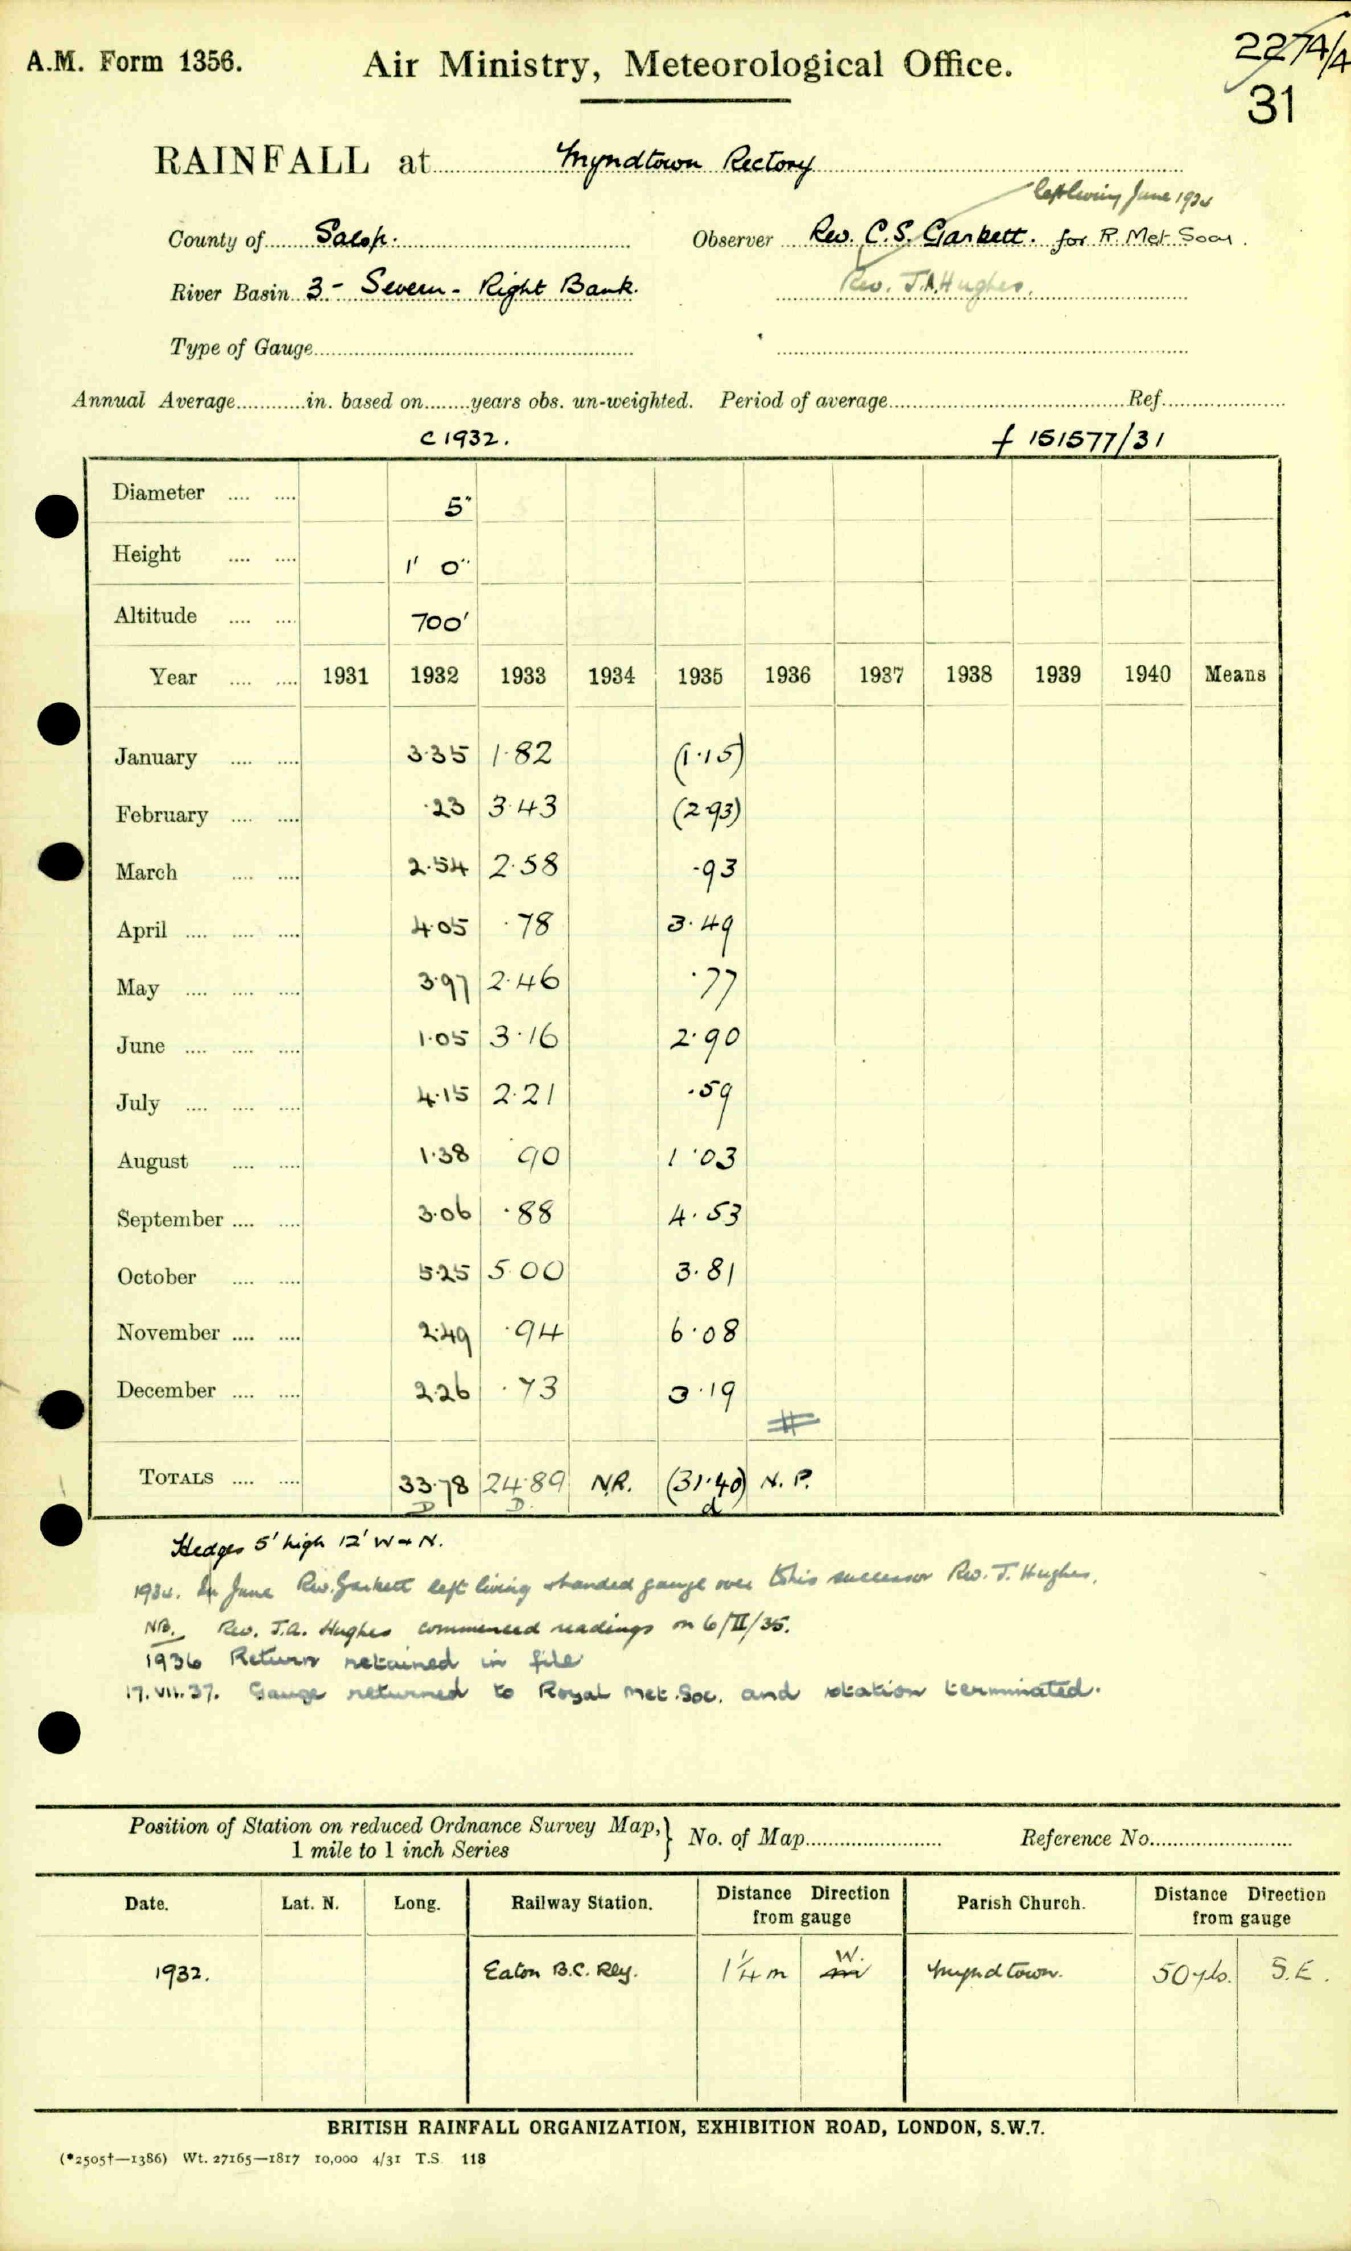 A.M. Form 1356. Air Ministry, Meteorological Office. 2274/4
31
RAINFALL at Myndtown Rectory
left living June 1934
County of Salop. Observer Rev. C.S. Garbett. for R. Met. Socy.
River Basin 3 - Severn - Right Bank. Rev. J.A. Hughes.
Type of Gauge
Annual Average in. based on years obs. un-weighted. Period of average Ref.
C 1932. f 151577/31
Diameter 5"
Height 1' 0"
Altitude 700'
Year 1931 1932 1933 1934 1935 1936 1937 1938 1939 1940 Means
January 3.35 1.82 (1.15)
February .23 3.43 (2.93)
March 2.54 2.58 .93
April 4.05 .78 3.49
May 3.97 2.46 .77
June 1.05 3.16 2.90
July 4.15 2.21 .59
August 1.38 .90 1.03
September 3.06 .88 4.53
October 5.25 5.00 3.81
November 2.49 .94 6.08
December 2.26 .73 3.19
TOTALS 33.78 24.89 N.R. (31.40) N.P.
D D. d
Hedges 5' high 12' W & N.
1934. In June Rev. Garbett left living & handed gauge over to his successor Rev. J. Hughes.
NB. Rev. J.A. Hughes commenced readings on 6/II/35.
1936 Return retained in file
17.VII.37. Gauge returned to Royal Met. Soc. and station terminated.
Position of Station on reduced Ordnance Survey Map, } No. of Map Reference No.
1 mile to 1 inch Series
Date. Lat. N. Long. Railway Station. Distance Direction from gauge Parish Church. Distance Direction from gauge
1932. Eaton B.C. Rly. 1¼ m W. Myndtown. 50 yds. S.E.
BRITISH RAINFALL ORGANIZATION, EXHIBITION ROAD, LONDON, S.W.7.
(*2505†—1386) Wt. 27165—1817 10,000 4/31 T.S. 118